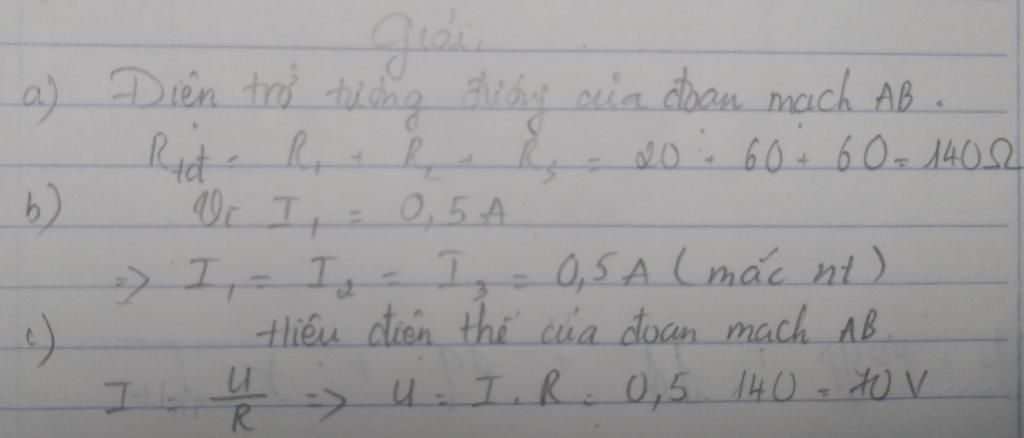 Giải.
a) Điện trở tương đương của đoạn mạch AB.
Rtđ = R1 + R2 + R3 = 20 + 60 + 60 = 140Ω
b) Vì I1 = 0,5A
=> I1 = I2 = I3 = 0,5A (mắc nt)
c) Hiệu điện thế của đoạn mạch AB.
I = U/R => U = I . R = 0,5 140 = 70V